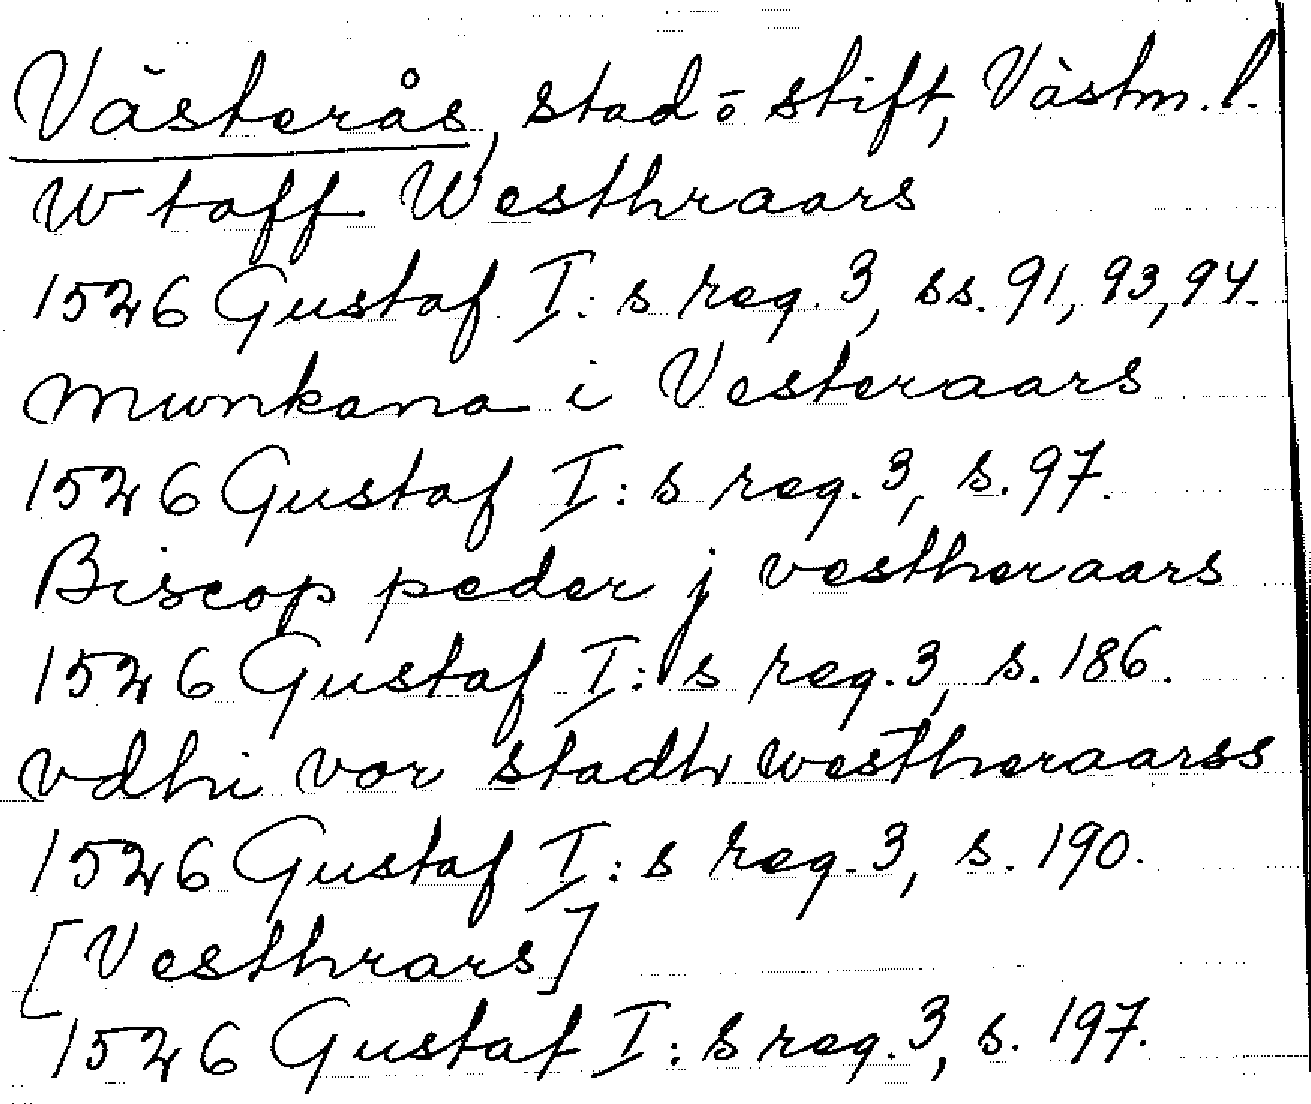 Västerås, stad o stift, Västm. l.
W taff Westhraars
1526 Gustaf I:s reg. 3, ss. 91, 93, 94.
Munkana i Vesteraars
1526 Gustaf I:s reg. 3, s. 97.
Biscop peder j vestheraars
1526 Gustaf I:s reg. 3, s. 186.
vdhi vor stadh westheraarss
1526 Gustaf I:s reg. 3, s. 190.
[Vesthrars]
1526 Gustaf I:s reg. 3, s. 197.